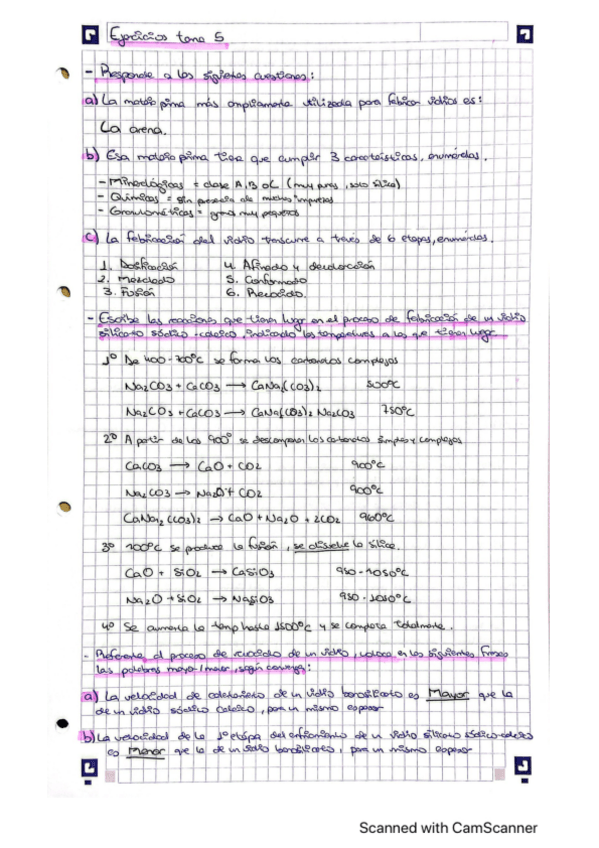 Ejercicios tema 5
- Responde a las siguientes cuestiones:
a) La materia prima más ampliamente utilizada para fabricar vidrios es:
La arena.
b) Esa materia prima tiene que cumplir 3 características, enumérelas.
- Mineralógicas = clase A, B o C (muy puras, solo sílice)
- Químicas = sin presencia de muchas impurezas
- Granulométricas = granos muy pequeños
c) La fabricación del vidrio transcurre a través de 6 etapas, enumérelas.
1. Dosificación 4. Afinado y decoloración
2. Mezclado 5. Conformado
3. Fusión 6. Recocido.
- Escribe las reacciones que tienen lugar en el proceso de fabricación de un vidrio
silicato sódico-cálcico, indicando las temperaturas a las que tienen lugar.
1º De 400-700ºC se forma los carbonatos complejos
Na2CO3 + CaCO3 → CaNa2(CO3)2 500ºC
Na2CO3 + CaCO3 → CaNa2(CO3)2 Na2CO3 750ºC
2º A partir de los 900º se descomponen los carbonatos simples y complejos
CaCO3 → CaO + CO2 900ºC
Na2CO3 → Na2O + CO2 900ºC
CaNa2(CO3)2 → CaO + Na2O + 2CO2 960ºC
3º 700ºC se produce la fusión, se disuelve la sílice.
CaO + SiO2 → CaSiO3 950-1050ºC
Na2O + SiO2 → NaSiO3 950-1050ºC
4º Se aumenta la temp hasta 1500ºC y se completa totalmente.
- Referente al proceso de recocido de un vidrio, coloca en las siguientes frases
las palabras mayor/menor, según convenga:
a) La velocidad de calentamiento de un vidrio borosilicato es Mayor que la
de un vidrio sódico cálcico, para un mismo espesor
b) La velocidad de la 1º etapa del enfriamiento de un vidrio silicato sódico-cálcico
es Menor que la de un vidrio , para un mismo espesor
Scanned with CamScanner